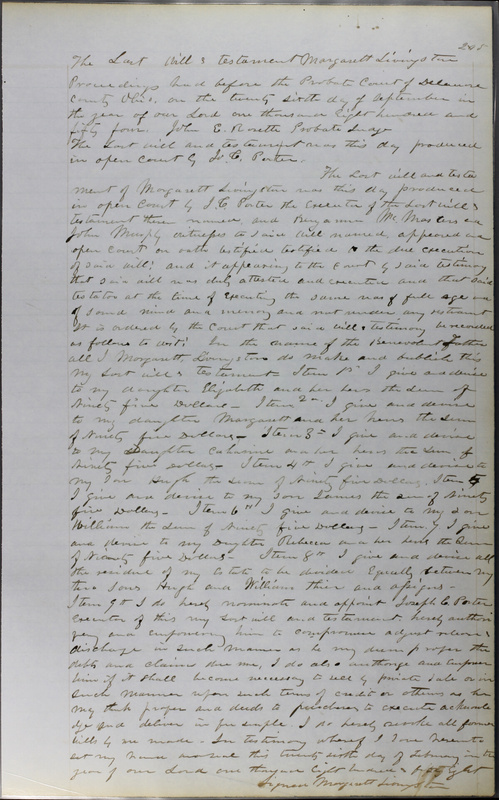 245
The Last Will & testament Margarett Livingston
Proceedings had before the Probate Court of Delaware
County Ohio, on the twenty sixth day of September in
the year of our Lord one thousand Eight hundred and
fifty four. John E. Rosette Probate Judge
The Last will and testament was this day produced
in open Court by J. C. Porter.
The Last will and testa
ment of Margarett Livingston was this day produced
in open Court by J. C. Porter the Executor of the Last will &
testament there named and Benjamin M. Masters and
John Murphy witnesses to said will named appeared in
open Court on oath testified testified to the due execution
of said will; and it appearing to the Court by said testimony
that said will was duly attested and executed and that said
testator at the time of Executing the same was of full age and
of sound mind and memory and not under any restraint
It is ordered by the Court that said will & testimony be recorded
as follows to wit: In the name of the Benevolent Father
all I Margarett Livingston do make and publish this
my Last will & testament Item 1st I give and devise
to my daughter Elizabeth and her heirs the Sum of
Ninety five Dollars - Item 2nd I give and devise
to my daughter Margarett and her heirs the sum
of Ninety five Dollars - Item 3rd I give and devise
to my Daughter Catharine and her heirs the Sum of
Ninety five Dollars - Item 4th I give and devise to
my Son Hugh the Sum of Ninety five Dollars, Item 5
I give and devise to my Son James the sum of Ninety
five Dollars - Item 6th I give and devise to my Son
William the Sum of Ninety five Dollars - Item 7 I give
and devise to my Daughter Rebecca and her heirs the Sum
of Ninety five Dollars - Item 8th I give and devise all
the residue of my Estate to be divided Equally between my
two Sons Hugh and William their and assigns -
Item 9th I do hereby nominate and appoint Joseph C. Porter
Executor of this my Last will and testament hereby author
izing and empowering him to compromise adjust release
discharge in such manner as he may deem proper the
debts and claims due me, I do also authorize and empower
him if it shall become necessary to sell by private Sale or in
such manner upon such terms of credit or others as he
may think proper and deeds to purchasers to execute acknowle
dge and deliver in fee simple I do hereby revoke all former
wills by me made - In testimony whereof I have hereunto
set my hand and seal this twenty sixth day of February in the
year of our Lord one thousand Eight hundred & forty Eight
Signed Margarett Livingston